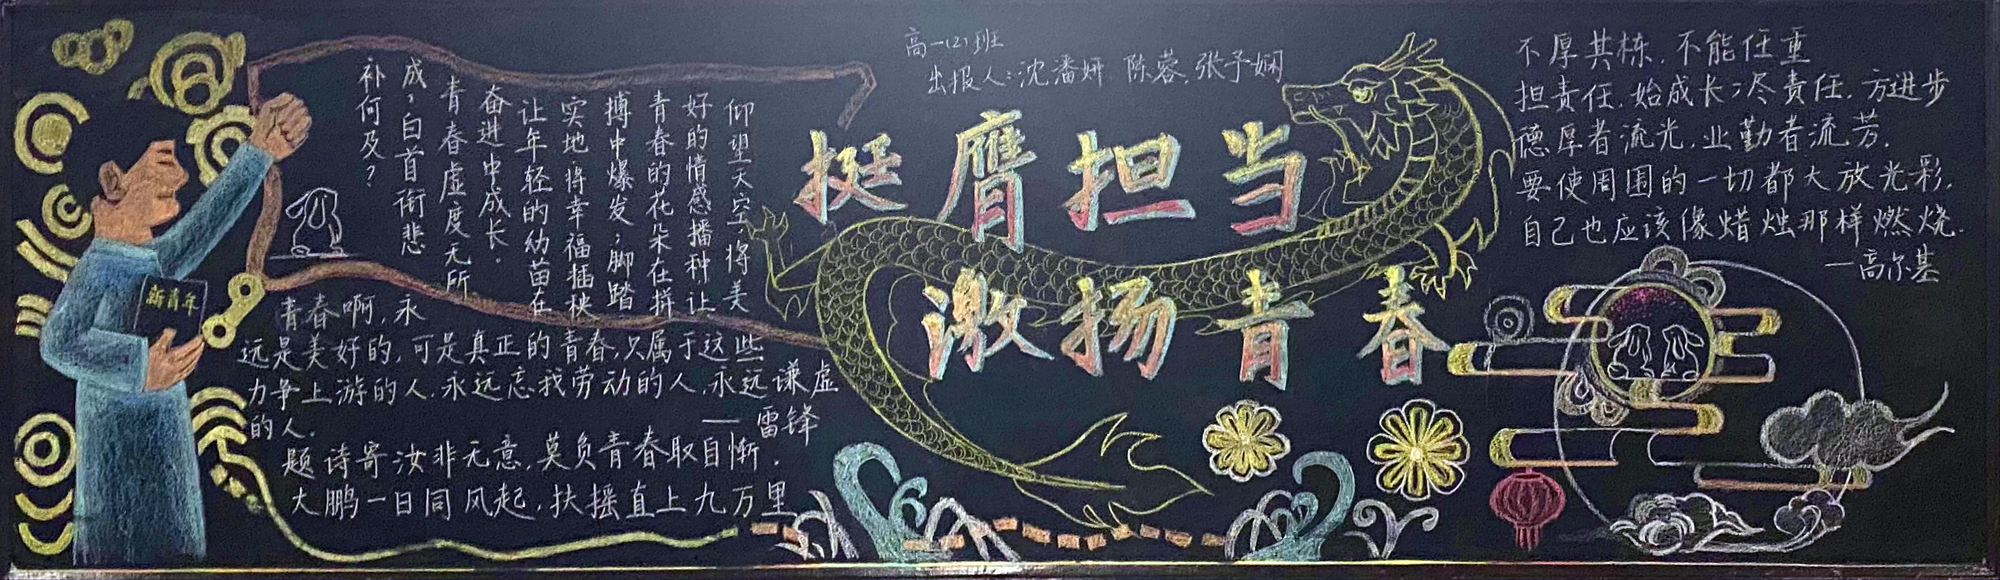 高一(2)班
出报人:沈潘妍 陈蓉,张予娴
挺膺担当
激扬青春
仰望天空,将美
好的情感播种让
青春的花朵在拼
搏中爆发;脚踏
实地,将幸福插秧
让年轻的幼苗在
奋进中成长.
青春虚度无所
成,白首衔悲
补何及?
新青年
青春啊,永
远是美好的,可是真正的青春,只属于这些
力争上游的人,永远忘我劳动的人,永远谦虚
的人.
——雷锋
题诗寄汝非无意,莫负青春取自惭.
大鹏一日同风起,扶摇直上九万里
不厚其栋,不能任重
担责任,始成长;尽责任,方进步
德厚者流光,业勤者流芳.
要使周围的一切都大放光彩,
自己也应该像蜡烛那样燃烧.
—高尔基